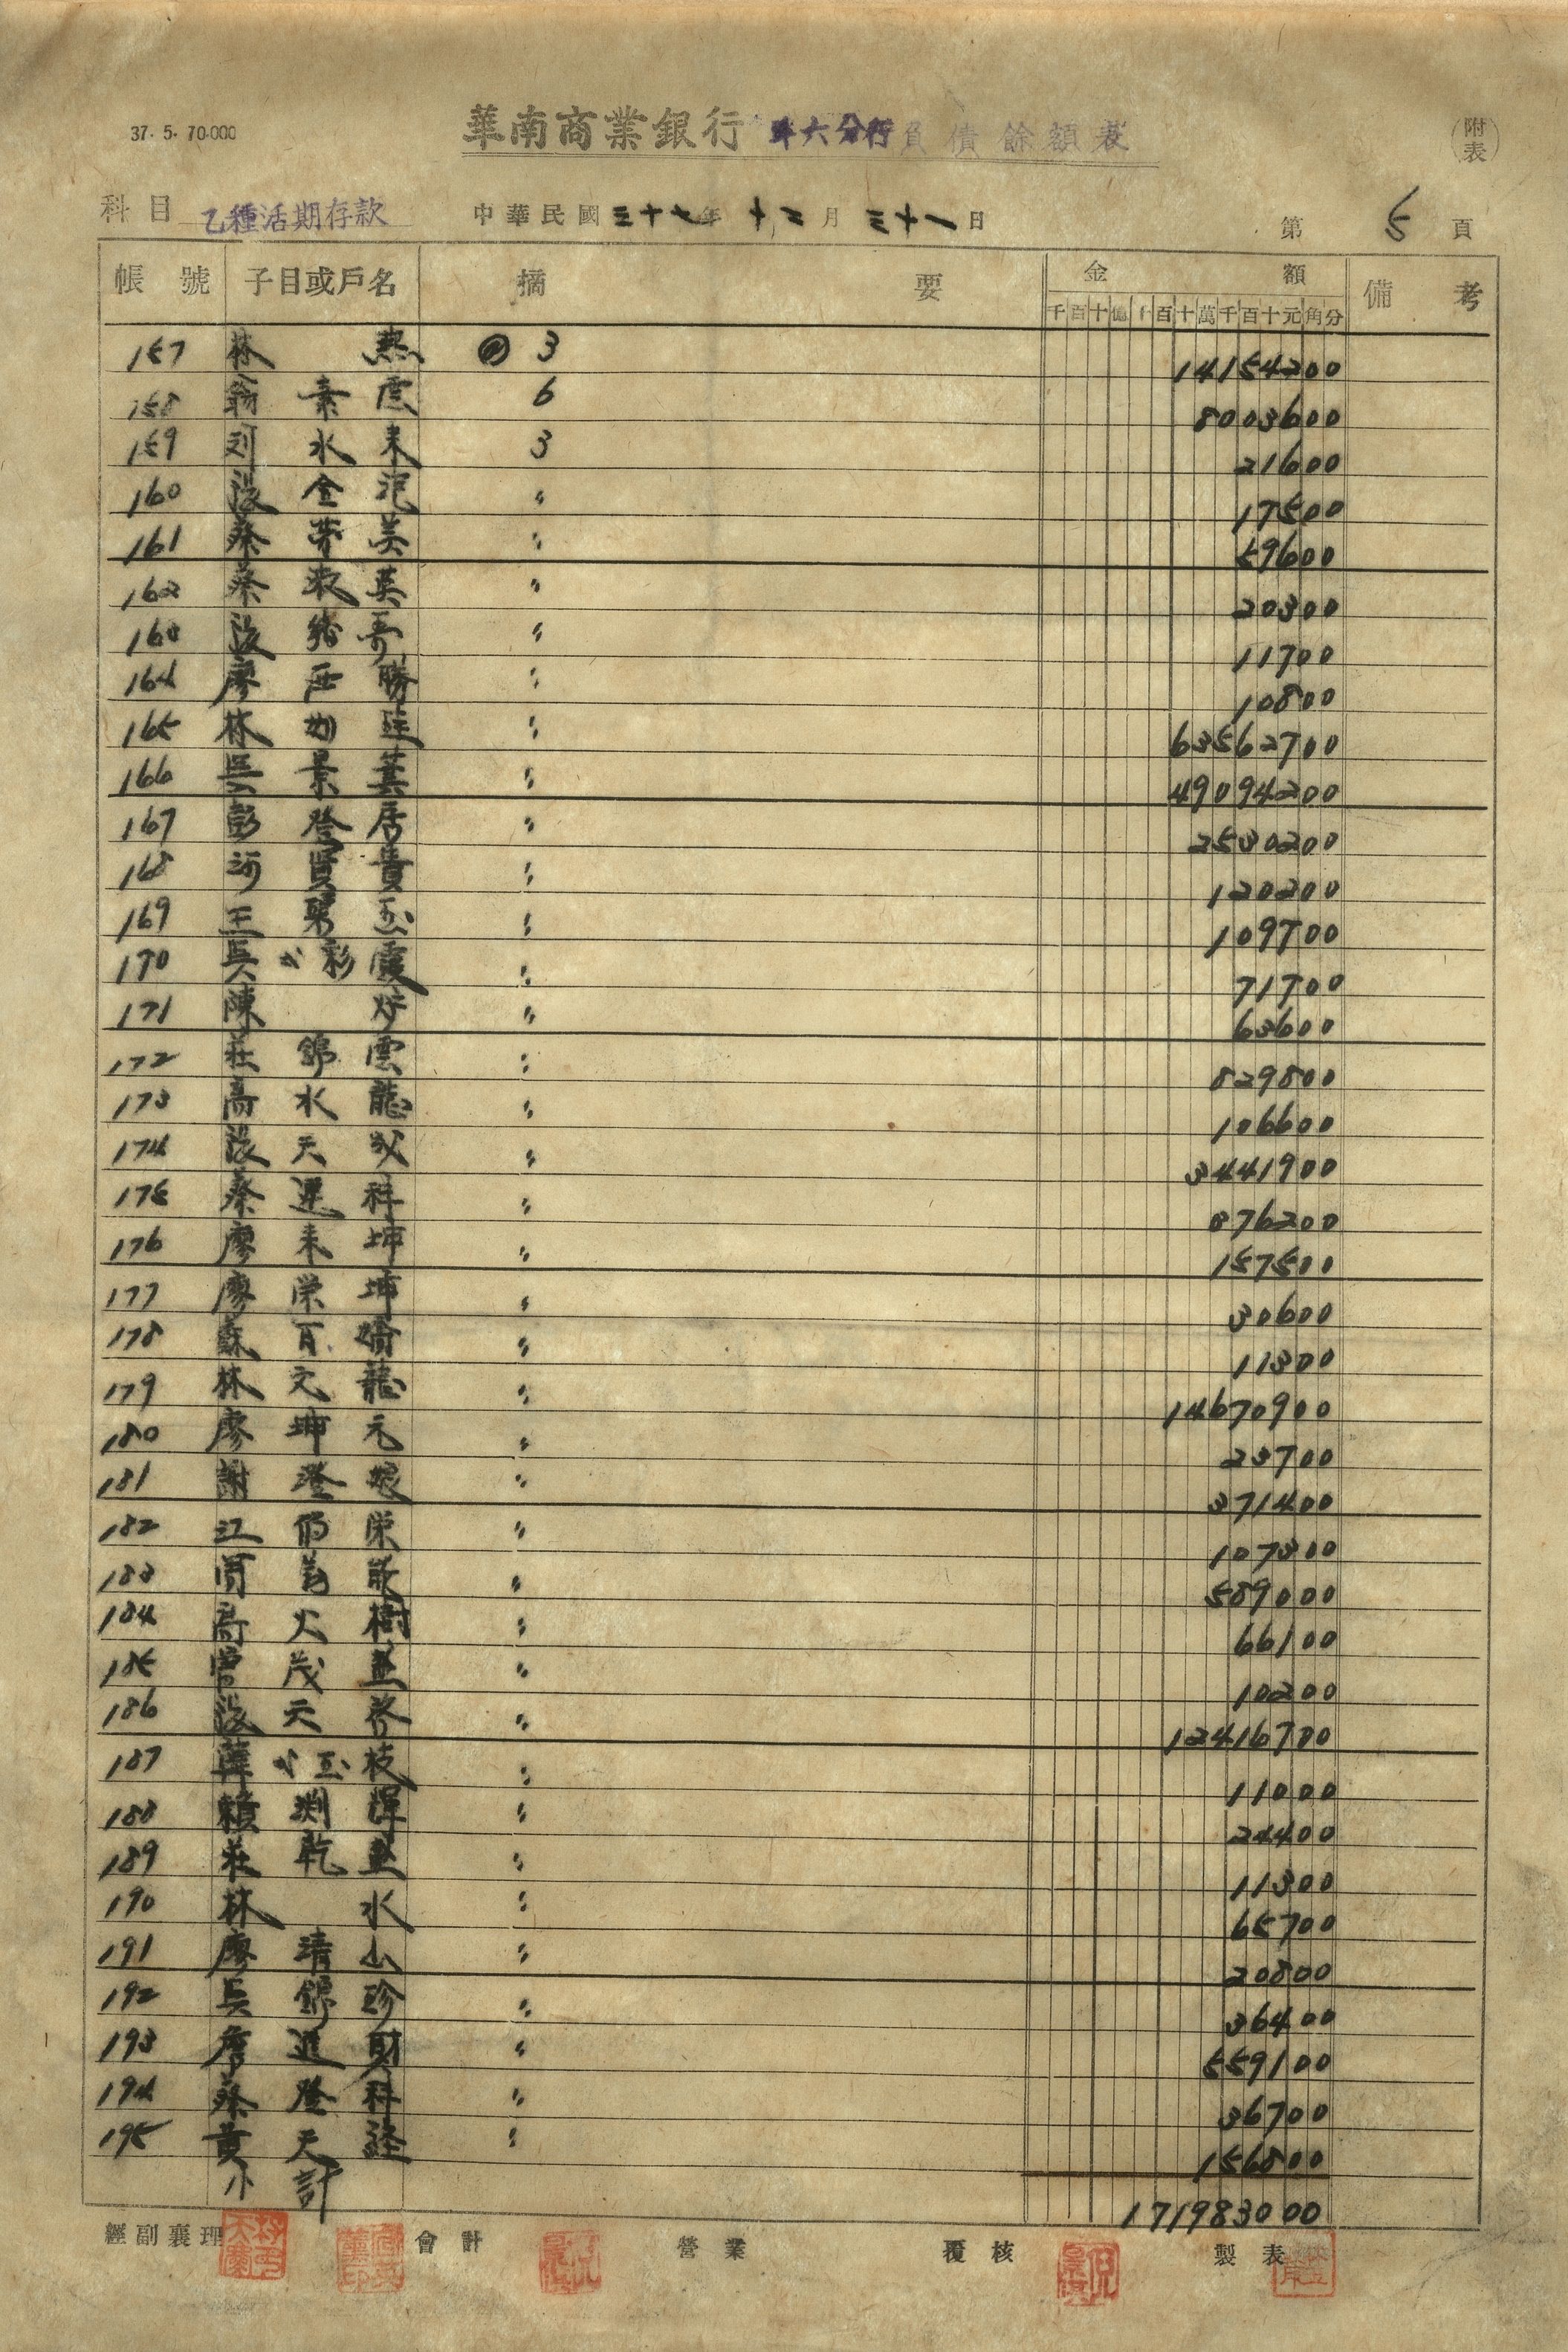 37. 5. 70.000
華南商業銀行 斗六分行 負債餘額表
附表
科目 乙種活期存款 中華民國三十七年十二月三十一日 第5頁
帳號 子目或戶名 摘要 金額 備考
千百十億千百十萬千百十元角分
157 林 熱 3 14154200
158 翁素 6 8003600
159 水來 3 21600
160 金 〃 17500
161 蔡 美 〃 59600
162 蔡淑英 〃 20300
163 〃 11700
164 廖 勝 〃 10800
165 林 〃 63562700
166 吳景 〃 49094200
167 彭登居 〃 2530200
168 貴 〃 120200
169 王 〃 109700
170 吳氏彩霞 〃 71700
171 陳 炉 〃 63600
172 莊錦雲 〃 829800
173 高水龍 〃 106600
174 天 〃 3441900
175 蔡 科 〃 876200
176 廖來坤 〃 157500
177 廖栄坤 〃 30600
178 蘇百 〃 11300
179 林文龍 〃 14670900
180 廖坤元 〃 23700
181 謝澄娘 〃 371400
182 江 栄 〃 107300
183 〃 589000
184 高火樹 〃 66100
185 曾茂 〃 10200
186 天 〃 12416700
187 薛氏玉枝 〃 11000
188 賴渊 〃 24400
189 莊乾 〃 11300
190 林 水 〃 65700
191 廖清山 〃 20800
192 吳錦珍 〃 36400
193 詹進財 〃 559100
194 蔡登科 〃 36700
195 黃天 〃 156800
小計 171983000
經副襄理 會計 營業 覆核 製表